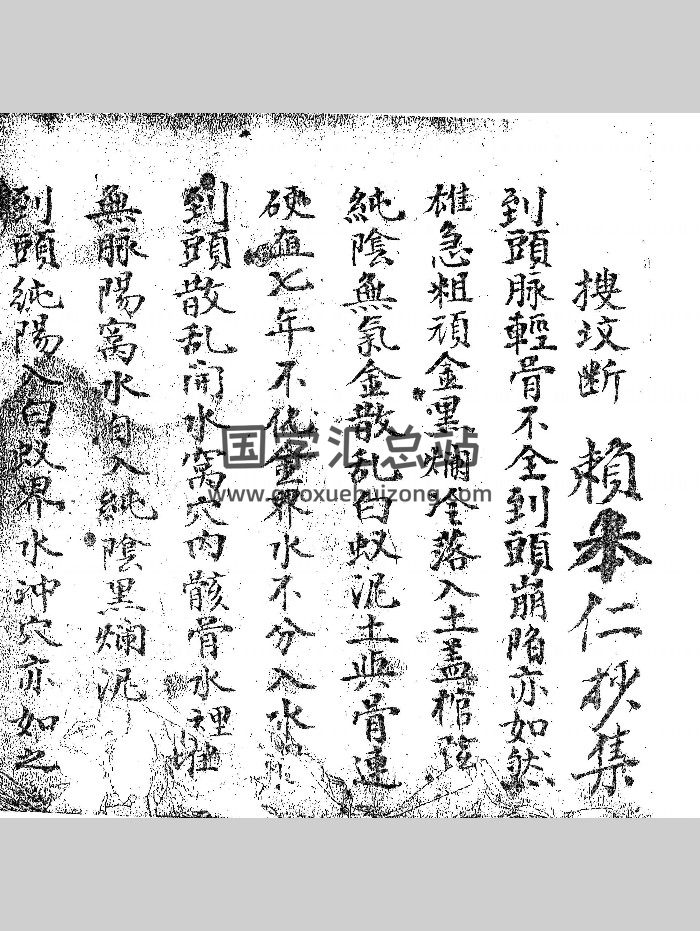 搜坟断 賴本仁抄集
到頭脉輕骨不全到頭崩陷亦如然
雄急粗頑金黑爛全落入土盖棺弦
純陰無氣金散乱白蚁泥土與骨連
硬直七年不化金界水不分入水
到頭散乱開水窩穴内骸骨水裡堆
無脉陽窩水自入純陰黑爛泥
到頭純陽入白蚁界水冲穴亦如之
国学汇总站
www.guoxuehuizong.com